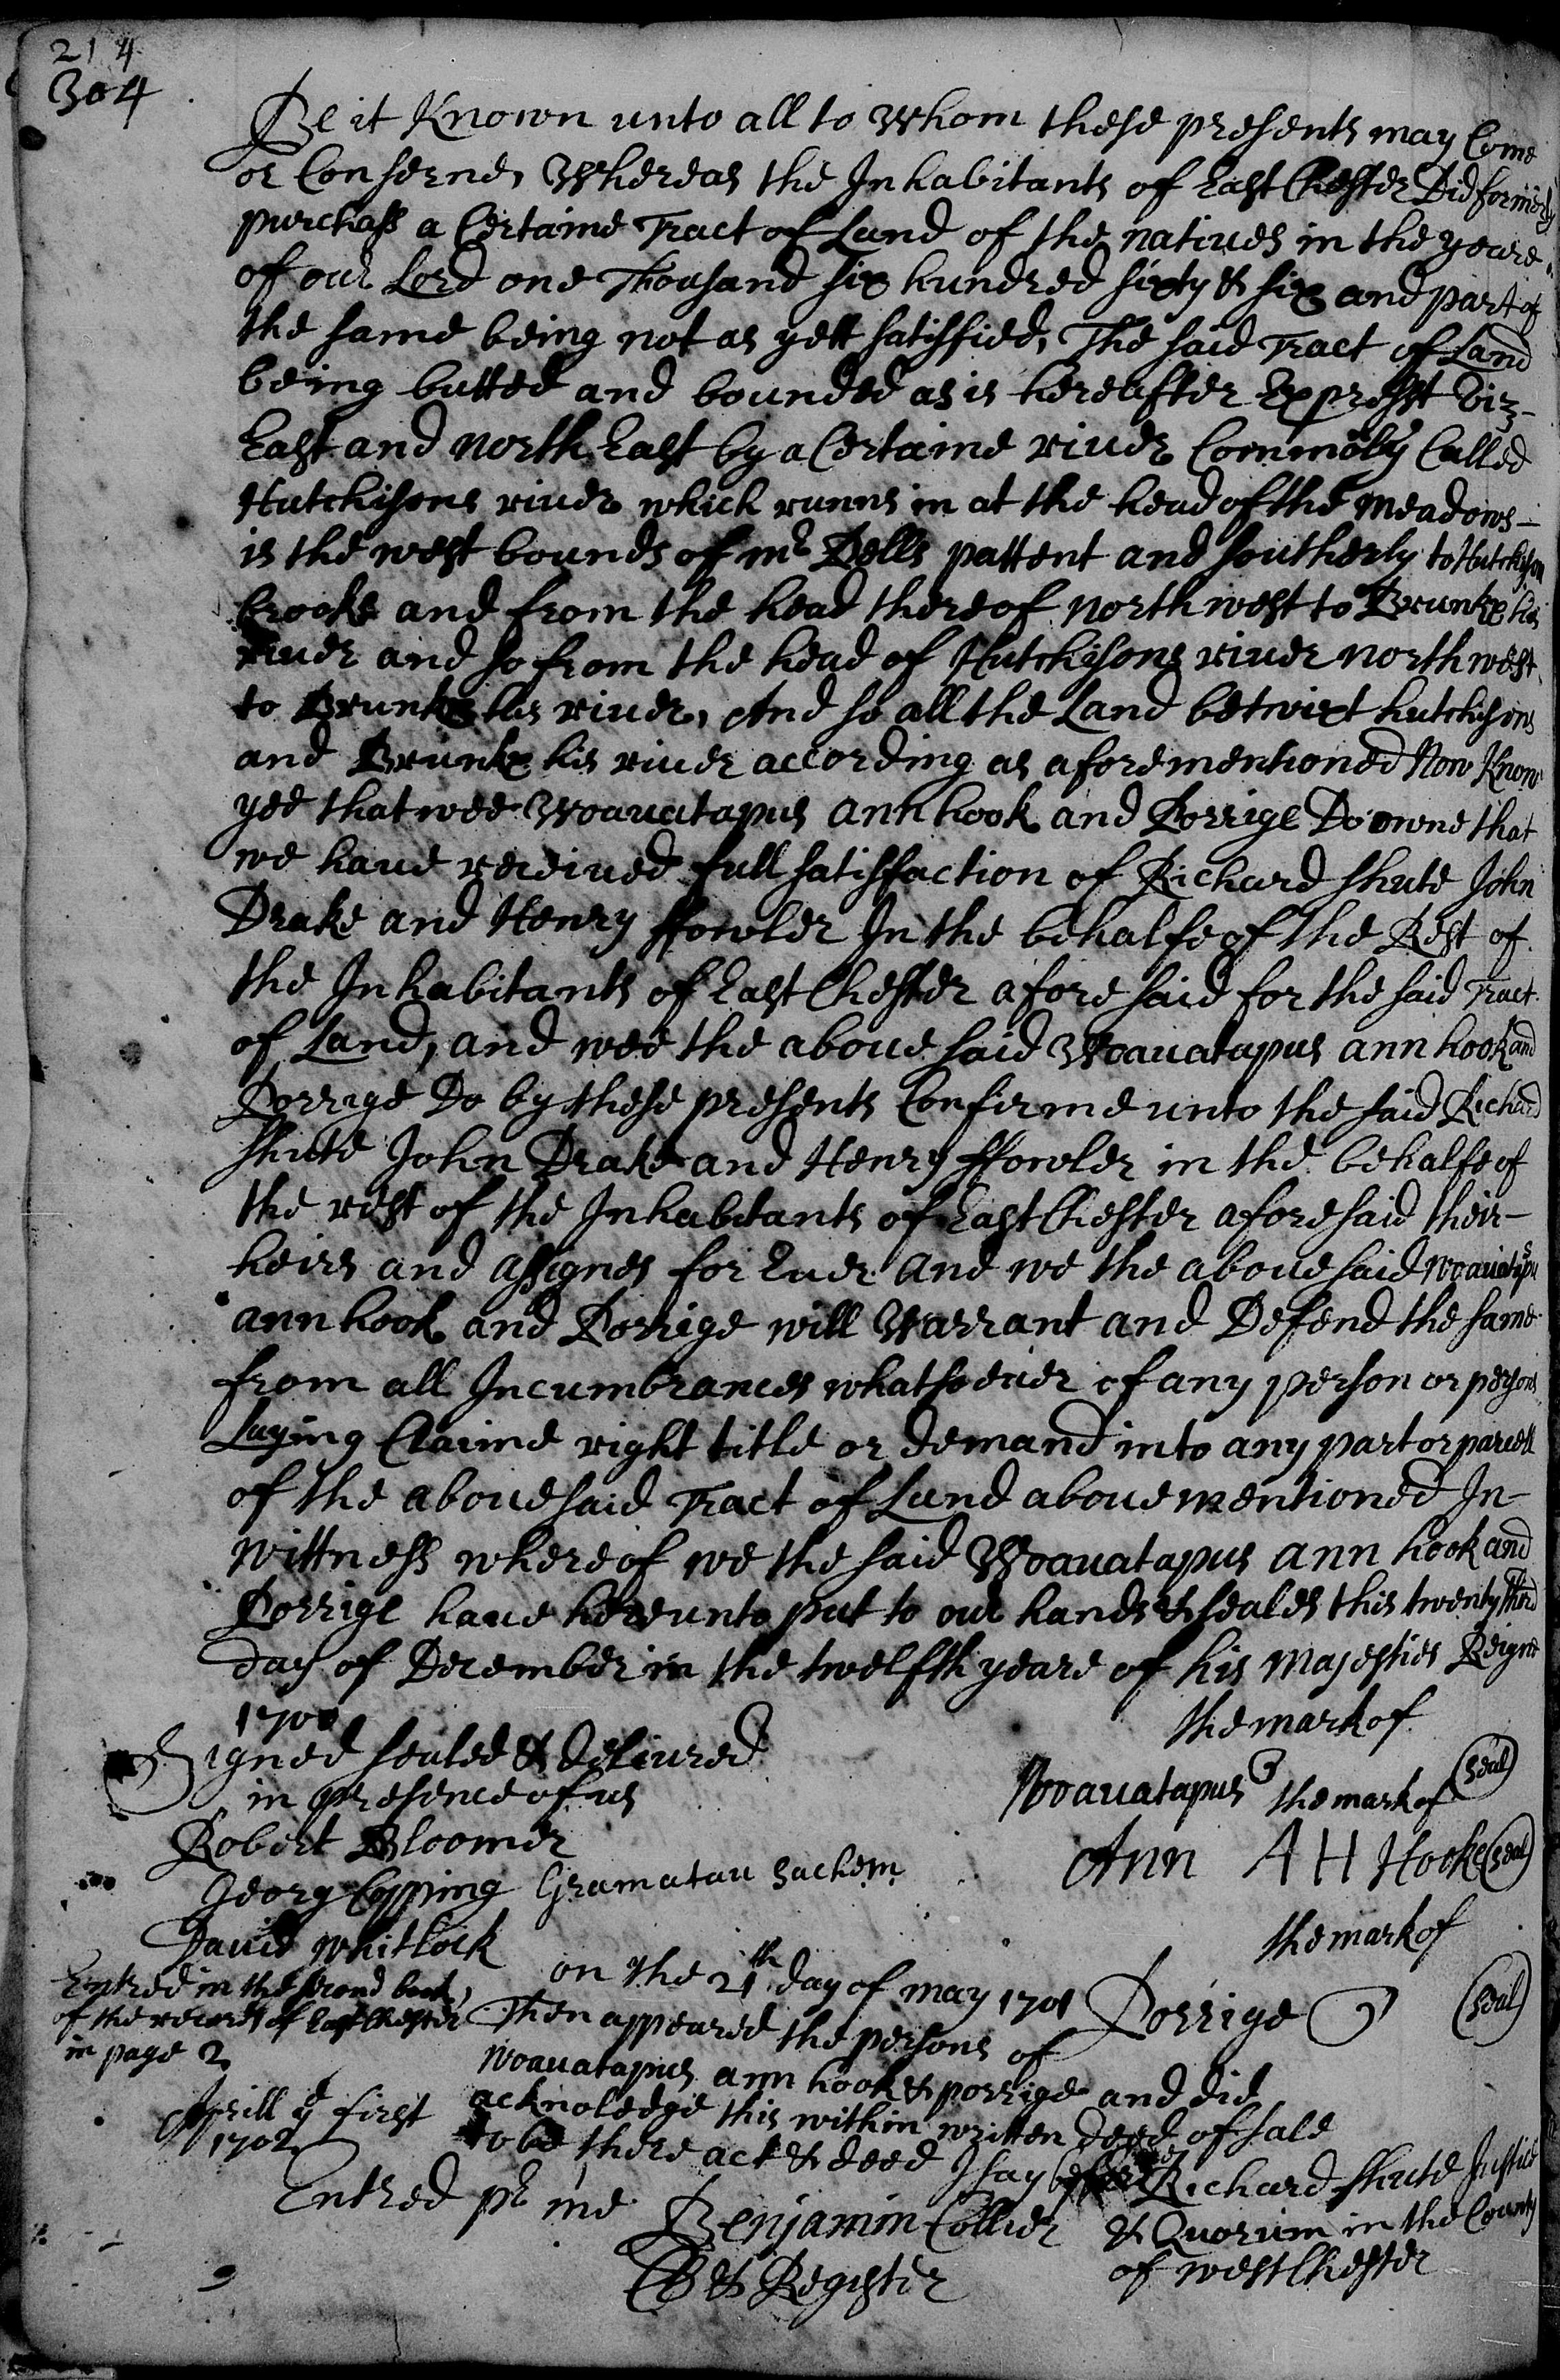 214
304
Be it Known unto all to Whom these presents may Come
or Conserne, Whereas the Inhabitants of EastChester Did formerly
purchass a Certaine Tract of Land of the natiues in the yeare
of our Lord one Thousand six hundred sixty & six and part of
the same being not as yett satisfied, The said Tract of Land
being butted and bounded as is hereafter Expresst Viz-
East and north East by a Certaine riuer Commonly Called
Hutchisons riuer which runns in at the head of the meadows-
is the west bounds of mr Pells pattent and southerly to Hutchison
brooke and from the head thereof north west to Brunkx his
riuer and so from the head of Hutchisons riuer north west
to Brunkx his riuer, And so all the Land betwixt hutchisons
and Brunkx his riuer according as aforementioned Now Know
yee that wee Woauatapus annhook and Porrige Do owne that
we haue receiued full satisfaction of Richard Shute John
Drake and Henry ffowler In the behalfe of the Rest of
the Inhabitants of EastChester afore said for the said Tract
of Land, and wee the aboue said Woauatapus ann hook and
Porrige Do by these presents Confirme unto the said Richard
Shute John Drake and Henry ffowler in the behalfe of
the rest of the Inhabitants of EastChester aforesaid their-
heirs and assignes for Euer And we the aboue said Woauatapus
ann hook and Porrige will Warrant and Defend the same
from all Incumbrances whatsoeuer of any person or persons
Laying Claime right title or demand into any part or parcell
of the abouesaid Tract of Land aboue mentioned In-
wittness whereof we the said Woauatapus ann hook and
Porrige haue hereunto put to our hands & seales this twenty third
day of December in the twelfth yeare of his Majesties Reigne
1700
the mark of
Signed sealed & deliured
in presence of us
Woauatapus (seal)
the mark of
Robert Bloomer
Ann A H Hooke (seal)
Georg Copping Gramatau Sachem
David Whitlock
the mark of
Porrige (seal)
Entred in the second book
of the records of EastChester
in page 2
on the 21th day of may 1701
Then appeared the persons of
Woauatapus ann hook & porrige and did
acknoledge this within written deed of sale
to be there act & deed I say before Richard Shute Justice
& Quorum in the County
of westChester
Aprill ye first
1702
Entred pr me
Benjamin Collier
& Register